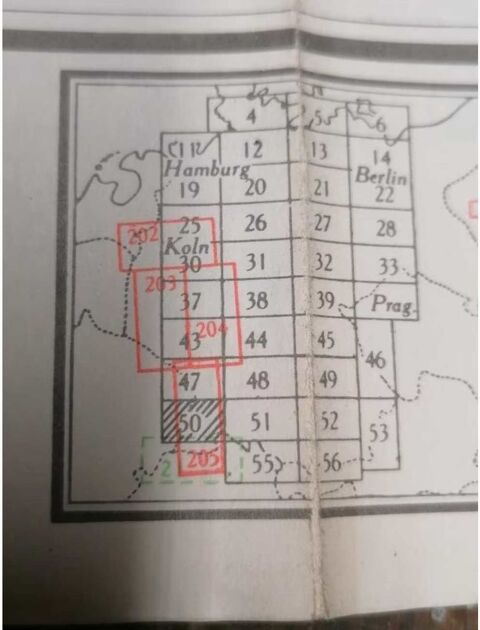 4 5 6
11 12 13 14
Hamburg Berlin
19 20 21 22
202 25 26 27 28
Koln
30 31 32 33
203
37 38 39 Prag
204
43 44 45 46
47 48 49
50 51 52 53
2 205 55 56